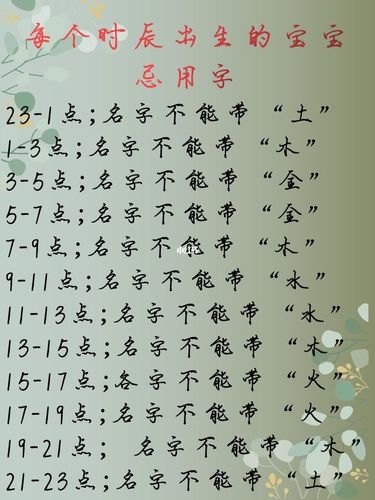 每个时辰出生的宝宝
忌用字
23-1点;名字不能带 “土”
1-3点;名字不能带 “木”
3-5点;名字不能带 “金”
5-7点;名字不能带 “金”
7-9点;名字不能带 “木”
9-11点;名字不能带 “水”
11-13点;名字不能带 “水”
13-15点;名字不能带 “木”
15-17点;各字不能带 “火”
17-19点;名字不能带 “火”
19-21点; 名字不能带 “木”
21-23点;名字不能带 “土”